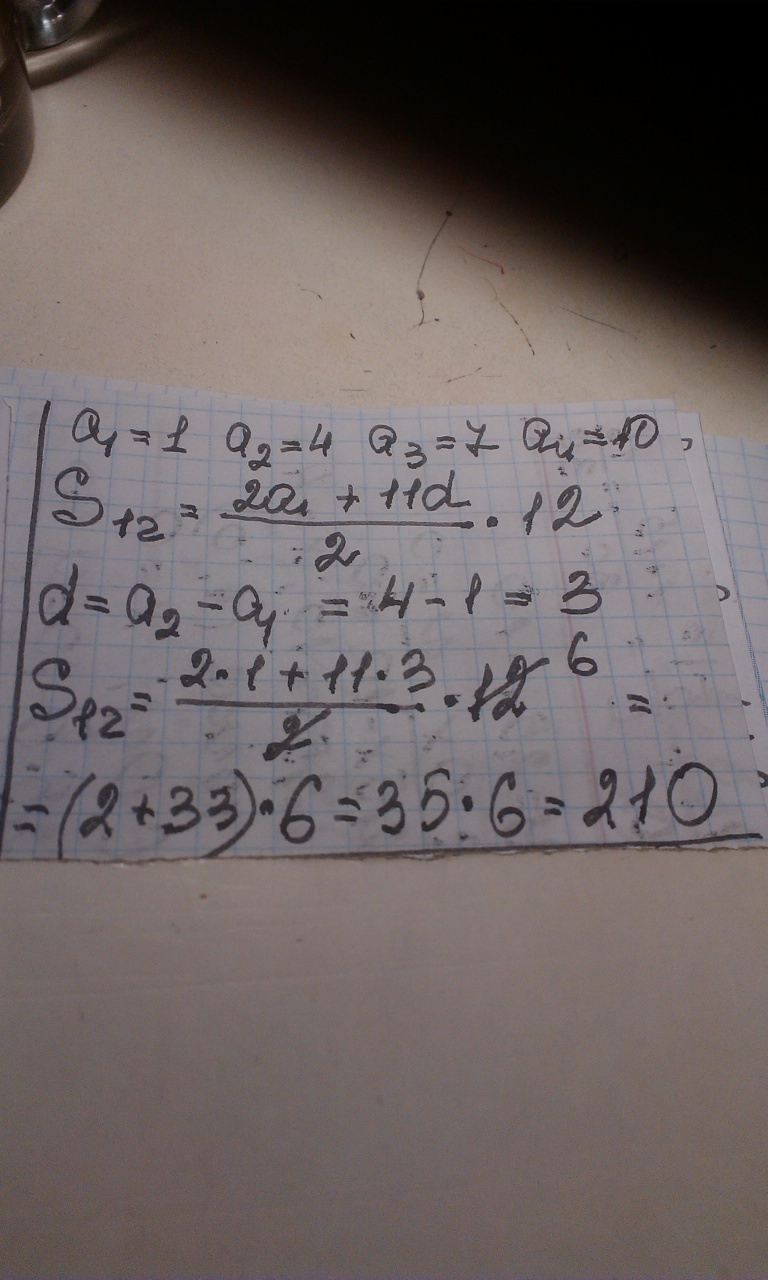 a₁=1 a₂=4 a₃=7 a₄=10,
S₁₂ = (2a₁ + 11d)/2 · 12
d = a₂ - a₁ = 4 - 1 = 3
S₁₂ = (2·1 + 11·3)/2 · 12 6 =
= (2+33)·6 = 35·6 = 210